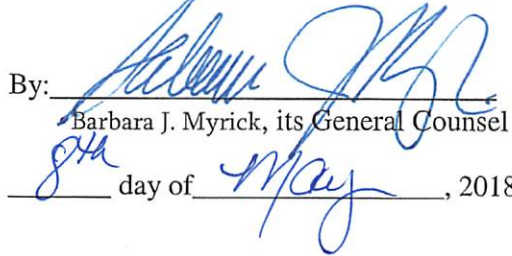 By:
Barbara J. Myrick, its General Counsel
8th day of May, 2018